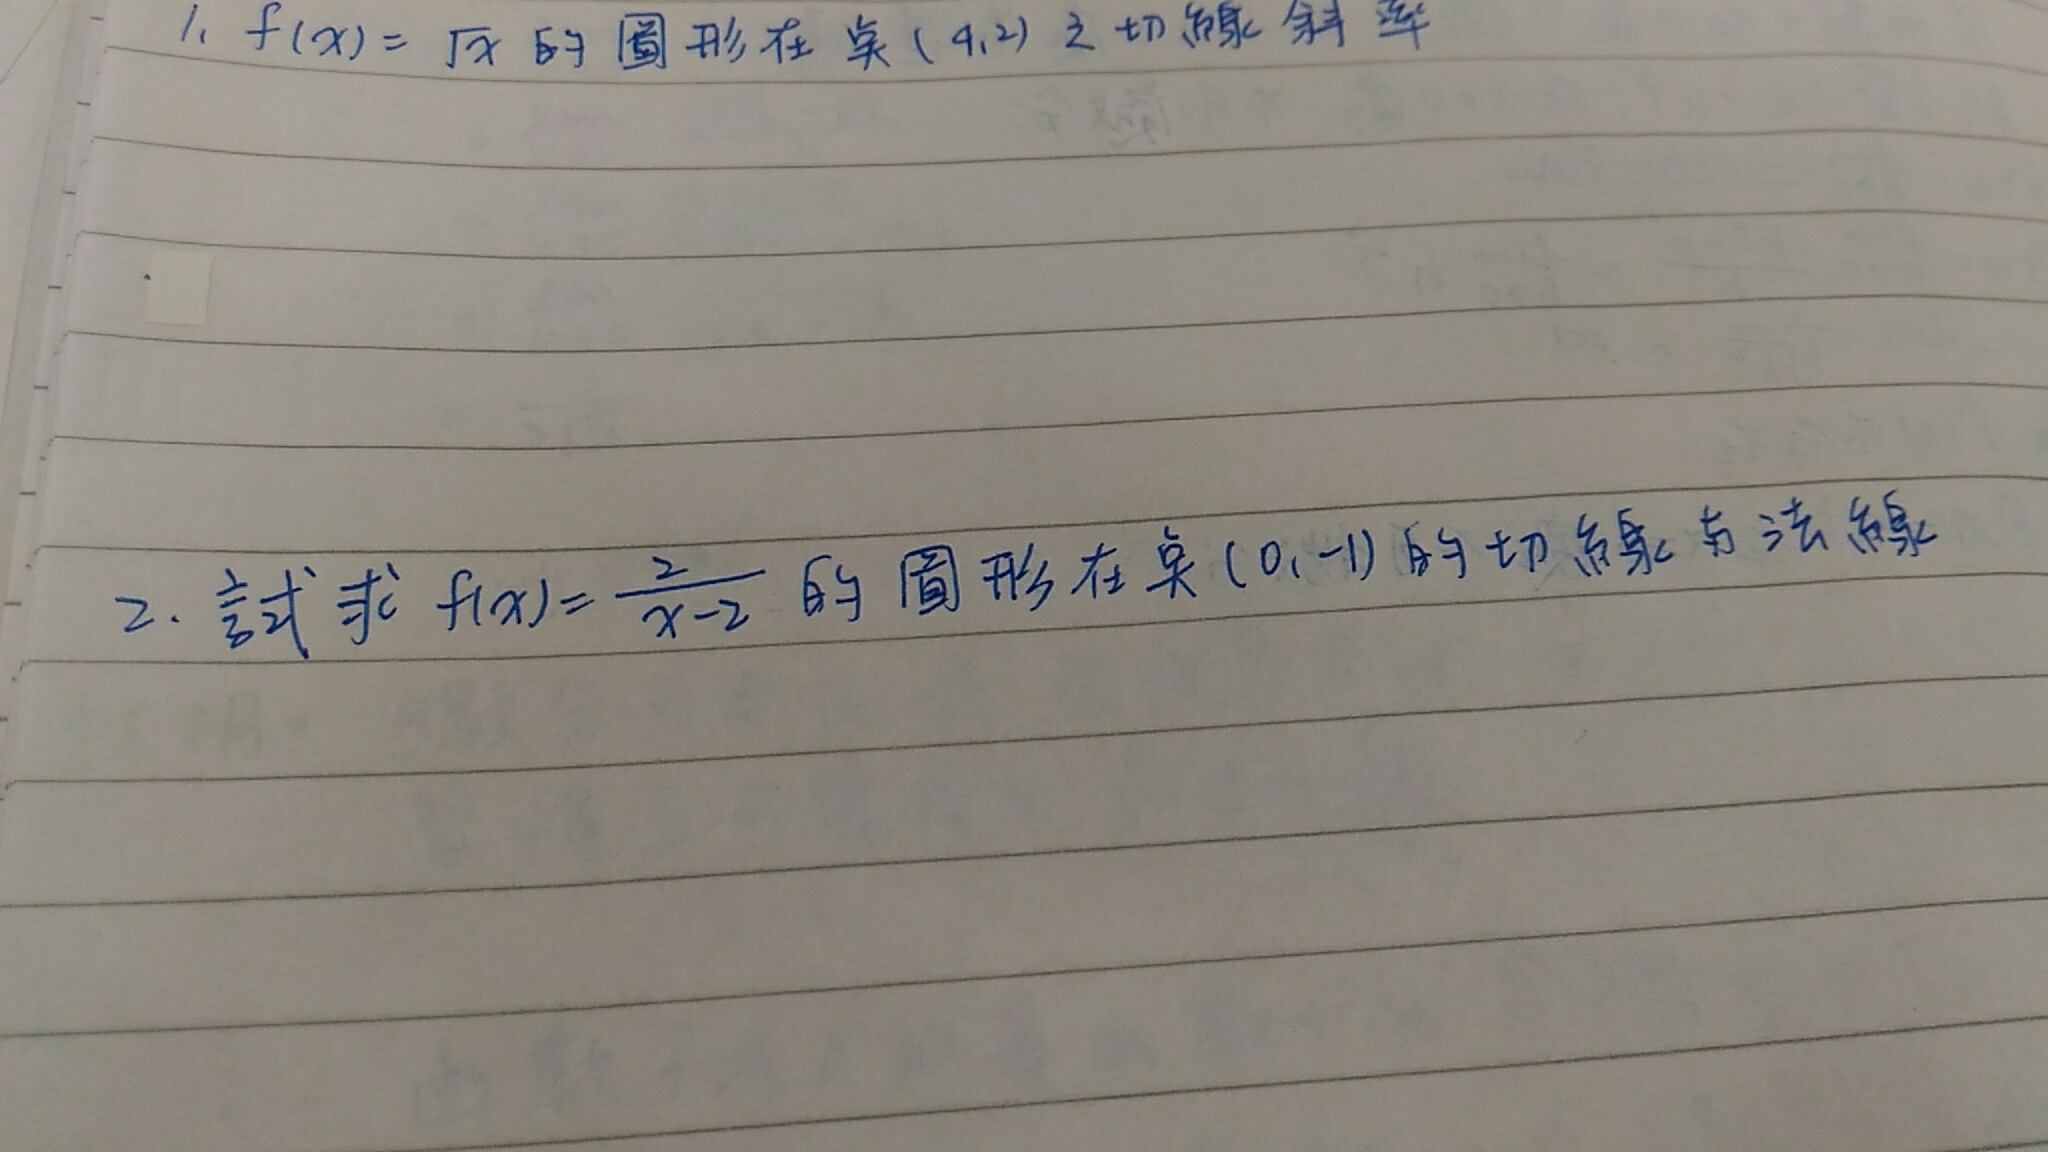 1. f(x) = √x 的圖形在点 (4,2) 之切線斜率
2. 試求 f(x) = 2/(x-2) 的圖形在点 (0,-1) 的切線与法線